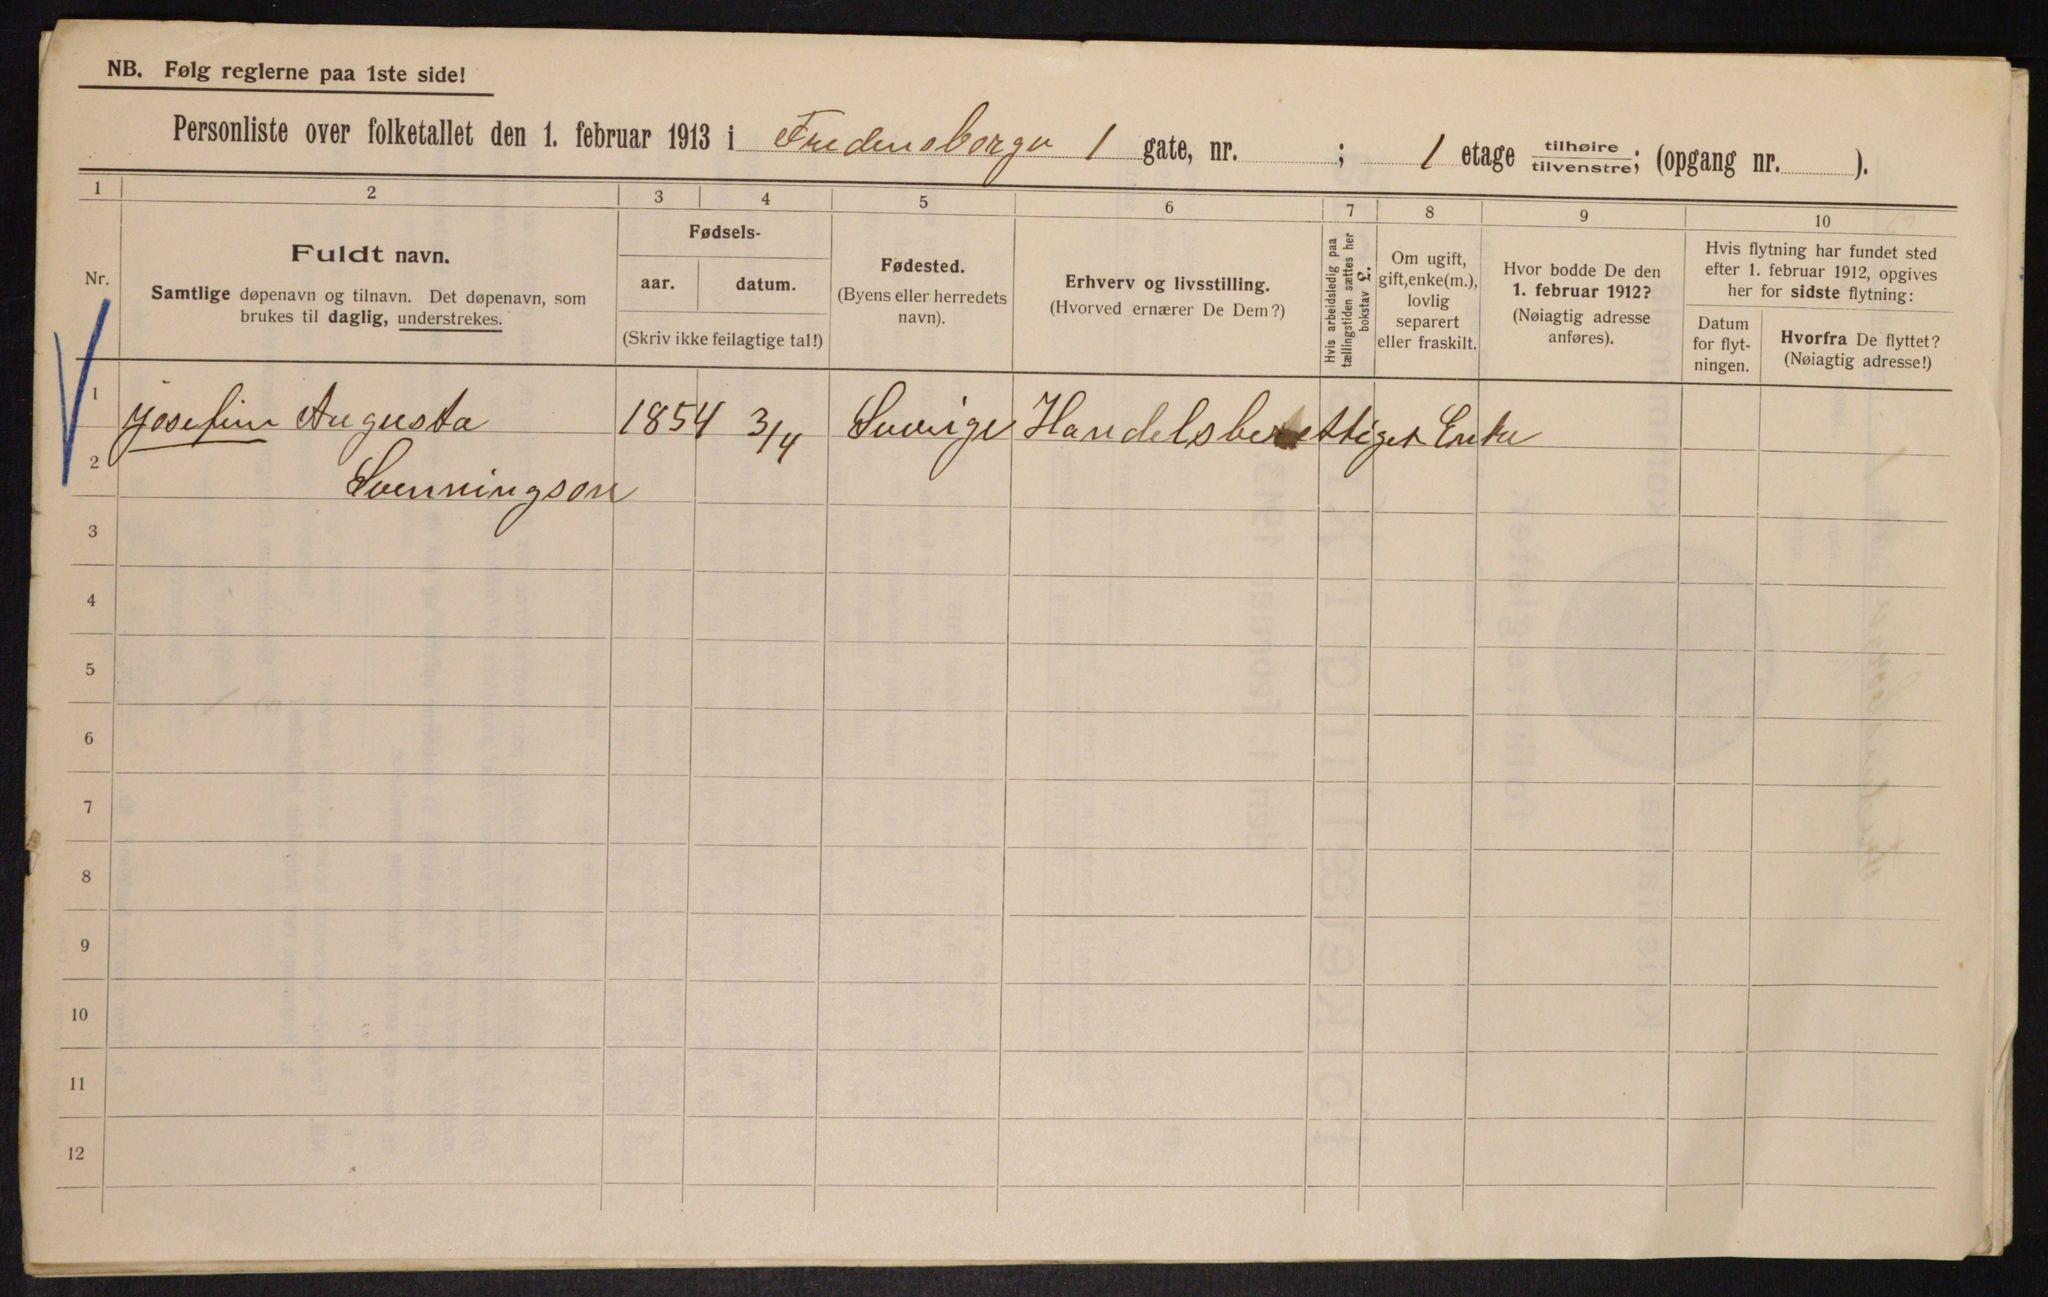 NB. Følg reglerne paa 1ste side!
Personliste over folketallet den 1. februar 1913 i Fredensborgv 1 gate, nr. ; 1 etage tilhøire/tilvenstre; (opgang nr. ).
1 2 3 4 5 6 7 8 9 10
Nr.
Fuldt navn.
Samtlige døpenavn og tilnavn. Det døpenavn, som
brukes til daglig, understrekes.
Fødsels-
aar. datum.
(Skriv ikke feilagtige tal!)
Fødested.
(Byens eller herredets
navn).
Erhverv og livsstilling.
(Hvorved ernærer De Dem?)
Hvis arbeidsledig paa
tællingstiden sættes her
bokstav L.
Om ugift,
gift, enke(m.),
lovlig
separert
eller fraskilt.
Hvor bodde De den
1. februar 1912?
(Nøiagtig adresse
anføres).
Hvis flytning har fundet sted
efter 1. februar 1912, opgives
her for sidste flytning:
Datum
for flyt-
ningen.
Hvorfra De flyttet?
(Nøiagtig adresse!)
1 Josefine Augusta 1854 3/4 Sverige Handelsberettiget Enke
2 Svenningson
3
4
5
6
7
8
9
10
11
12